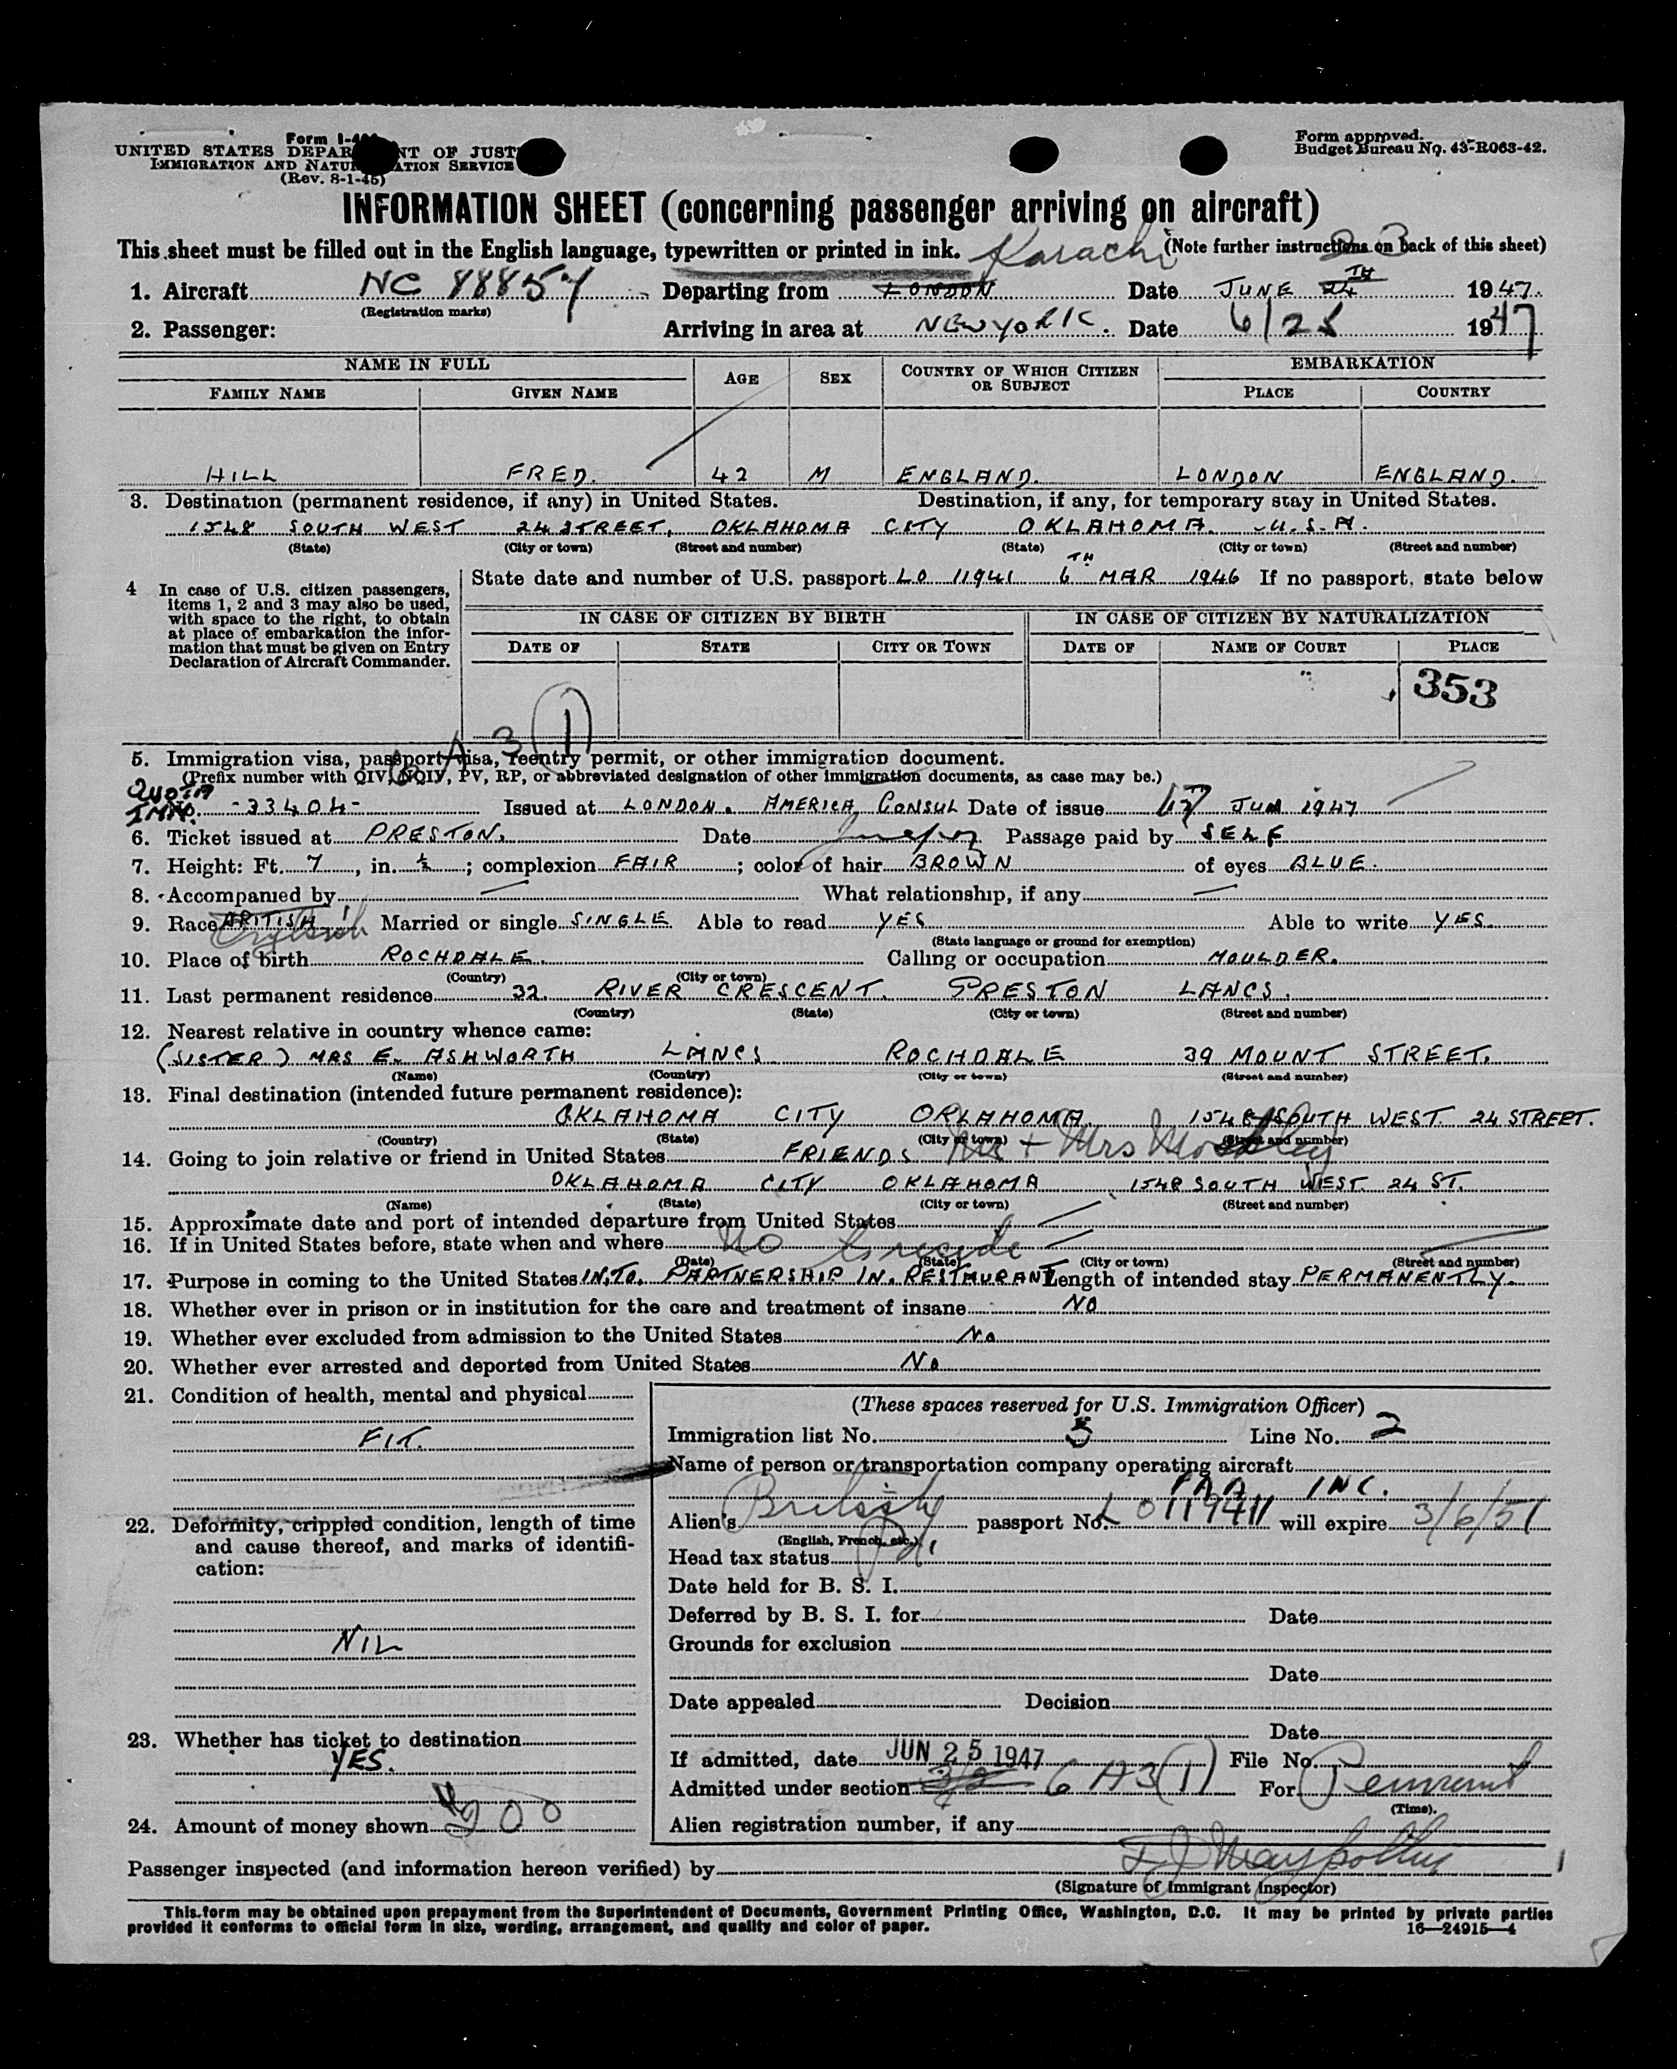 Form I-4
UNITED STATES DEPAR NT OF JUST
IMMIGRATION AND NATU ATION SERVICE
(Rev. 8-1-45)
Form approved.
Budget Bureau No. 43-R063-42.
INFORMATION SHEET (concerning passenger arriving on aircraft)
This sheet must be filled out in the English language, typewritten or printed in ink. Karachi (Note further instructions on back of this sheet)
23
1. Aircraft NC 88857 Departing from LONDON Date JUNE 24TH 1947.
(Registration marks)
2. Passenger: Arriving in area at NEW YORK. Date 6/25 1947
NAME IN FULL AGE SEX COUNTRY OF WHICH CITIZEN OR SUBJECT EMBARKATION
FAMILY NAME GIVEN NAME PLACE COUNTRY
HILL FRED. 42 M ENGLAND. LONDON ENGLAND.
3. Destination (permanent residence, if any) in United States. Destination, if any, for temporary stay in United States.
1548 SOUTH WEST 24 STREET, OKLAHOMA CITY OKLAHOMA. U.S.A.
(State) (City or town) (Street and number) (State) (City or town) (Street and number)
4 In case of U.S. citizen passengers, items 1, 2 and 3 may also be used, with space to the right, to obtain at place of embarkation the information that must be given on Entry Declaration of Aircraft Commander.
State date and number of U.S. passport LO 11941 6TH MAR 1946 If no passport, state below
IN CASE OF CITIZEN BY BIRTH IN CASE OF CITIZEN BY NATURALIZATION
DATE OF STATE CITY OR TOWN DATE OF NAME OF COURT PLACE
353
6 A 3 (1)
5. Immigration visa, passport visa, reentry permit, or other immigration document.
(Prefix number with QIV, NQIV, PV, RP, or abbreviated designation of other immigration documents, as case may be.)
QUOTA
IMM. No. -33404- Issued at LONDON. AMERICA CONSUL Date of issue 17 JUN 1947
6. Ticket issued at PRESTON. Date Passage paid by SELF
7. Height: Ft. 7, in. ½; complexion FAIR; color of hair BROWN of eyes BLUE.
8. Accompanied by — What relationship, if any —
9. Race BRITISH English Married or single SINGLE Able to read YES Able to write YES.
(State language or ground for exemption)
10. Place of birth ROCHDALE. Calling or occupation MOULDER.
(Country) (City or town)
11. Last permanent residence 32. RIVER CRESCENT. PRESTON LANCS.
(Country) (State) (City or town) (Street and number)
12. Nearest relative in country whence came:
(SISTER) MRS E. ASHWORTH LANCS ROCHDALE 39 MOUNT STREET.
(Name) (Country) (City or town) (Street and number)
13. Final destination (intended future permanent residence):
OKLAHOMA CITY OKLAHOMA 1548 SOUTH WEST 24 STREET.
(Country) (State) (City or town) (Street and number)
14. Going to join relative or friend in United States FRIENDS Mr + Mrs
OKLAHOMA CITY OKLAHOMA 1548 SOUTH WEST 24 ST.
(Name) (State) (City or town) (Street and number)
15. Approximate date and port of intended departure from United States —
16. If in United States before, state when and where No
(Date) (State) (City or town) (Street and number)
17. Purpose in coming to the United States IN TO PARTNERSHIP IN RESTAURANT Length of intended stay PERMANENTLY.
18. Whether ever in prison or in institution for the care and treatment of insane NO
19. Whether ever excluded from admission to the United States No
20. Whether ever arrested and deported from United States No
21. Condition of health, mental and physical
FIT.
22. Deformity, crippled condition, length of time and cause thereof, and marks of identification:
NIL
23. Whether has ticket to destination
YES.
24. Amount of money shown 200
(These spaces reserved for U.S. Immigration Officer)
Immigration list No. 5 Line No. 2
Name of person or transportation company operating aircraft
PAA INC.
Alien's British passport No. LO119411 will expire 3/6/51
(English, French, etc.)
Head tax status Pd.
Date held for B. S. I.
Deferred by B. S. I. for Date
Grounds for exclusion
Date
Date appealed Decision
Date
If admitted, date JUN 25 1947 File No.
Admitted under section 6 A 3 (1) For
(Time).
Alien registration number, if any
Passenger inspected (and information hereon verified) by
(Signature of Immigrant Inspector)
This form may be obtained upon prepayment from the Superintendent of Documents, Government Printing Office, Washington, D.C. It may be printed by private parties
provided it conforms to official form in size, wording, arrangement, and quality and color of paper. 16—24915—4